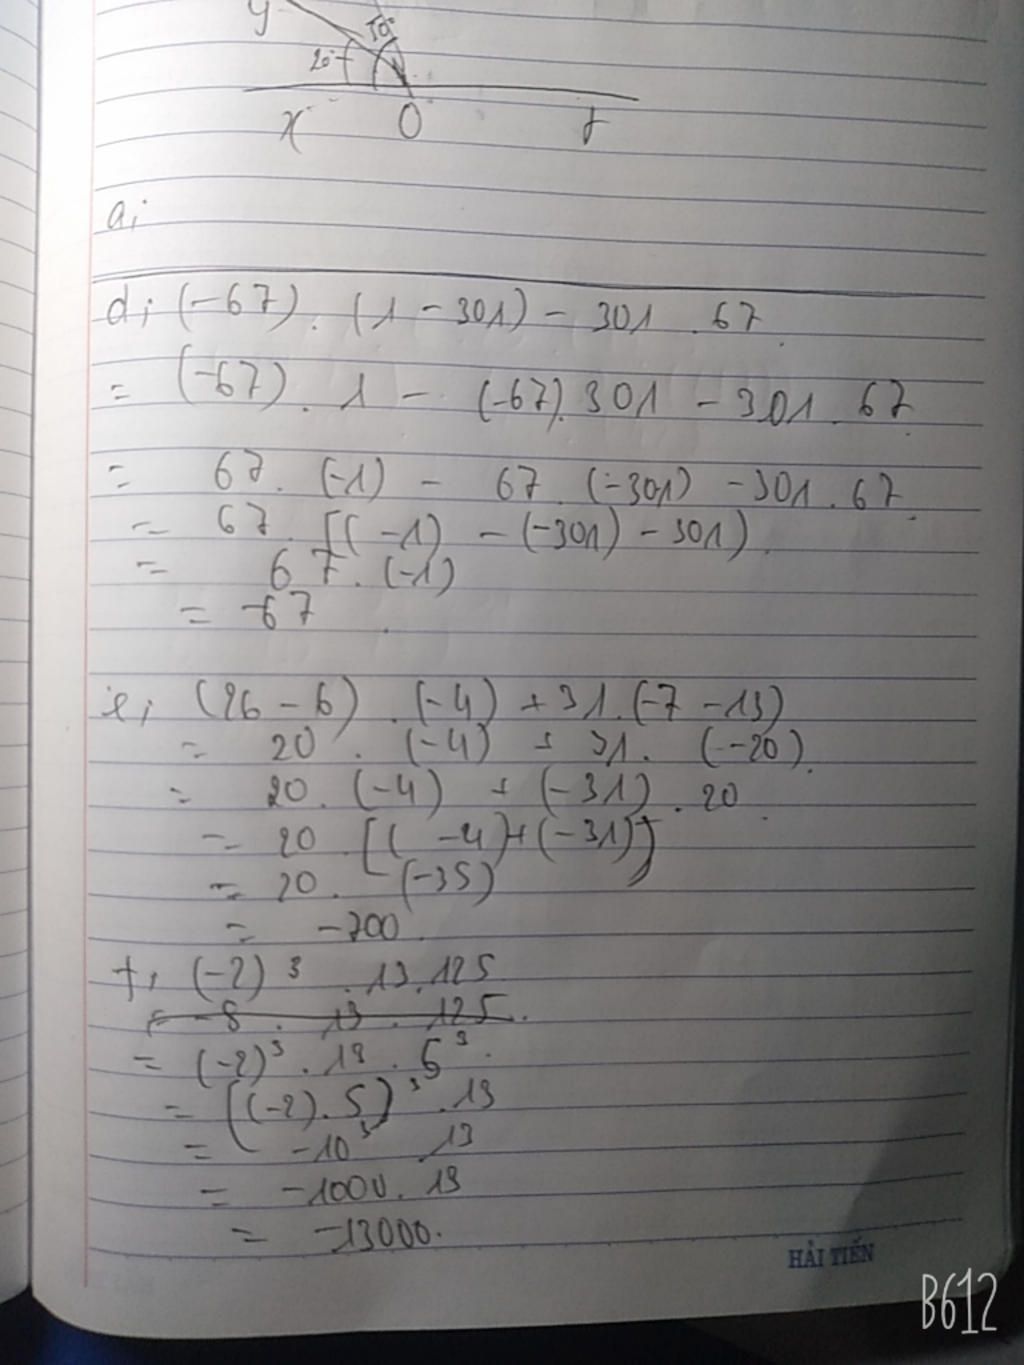 y 50°
20°
x O t
a;
d; (-67). (1 - 301) - 301 . 67
= (-67) . 1 - (-67). 301 - 301 . 67
= 67. (-1) - 67 . (-301) - 301 . 67
= 67 . [(-1) - (-301) - 301)
= 67 . (-1)
= -67
e; (26 - 6) . (-4) + 31. (-7 - 13)
= 20 . (-4) + 31. (-20)
= 20 . (-4) + (-31) . 20
= 20 . [(-4)+(-31)]
= 20 . (-35)
= -700
f, (-2)³ . 13 . 125
= -8 . 13 . 125
= (-2)³ . 13 . 5³
= ((-2).5)³ . 13
= -10³ . 13
= -1000 . 13
= -13000.
HẢI TIẾN
B612